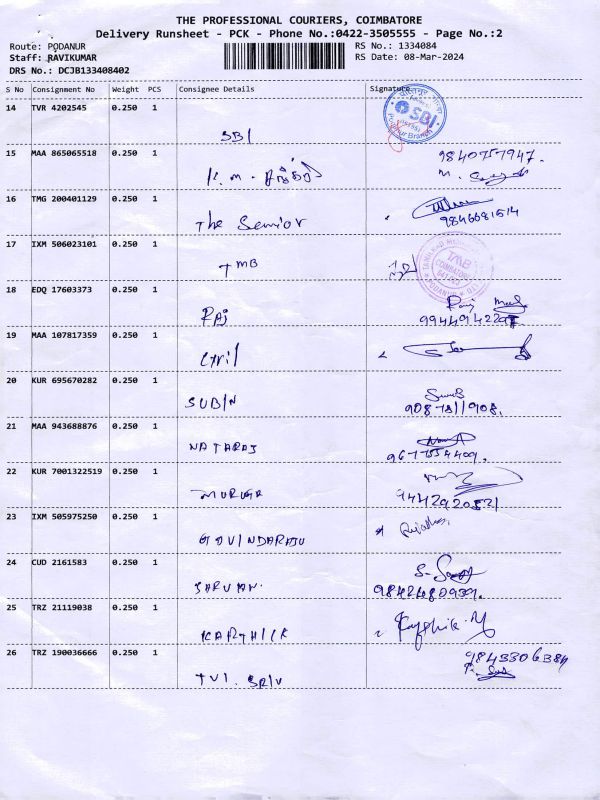 THE PROFESSIONAL COURIERS, COIMBATORE
Delivery Runsheet - PCK - Phone No.:0422-3505555 - Page No.:2
Route: PODANUR RS No.: 1334084
Staff: RAVIKUMAR RS Date: 08-Mar-2024
DRS No.: DCJB133408402
S No Consignment No Weight PCS Consignee Details Signature
14 TVR 4202545 0.250 1
SBI SBI
15 MAA 865065518 0.250 1 9840757947.
K. M.
16 TMG 200401129 0.250 1
The Senior 9846681514
17 IXM 506023101 0.250 1
TMB TMB
18 EDQ 17603373 0.250 1
RAJ Raj
19 MAA 107817359 0.250 1
Cyril
20 KUR 695670282 0.250 1
SUBIN 9087811908.
21 MAA 943688876 0.250 1
NATARAJ 9677554409.
22 KUR 7001322519 0.250 1
MURUGA 9442920521
23 IXM 505975250 0.250 1
GOVINDARAJU
24 CUD 2161583 0.250 1
SARVAN. 9842480939.
25 TRZ 21119038 0.250 1
KARTHICK Karthik. M
26 TRZ 190036666 0.250 1 9843306384
TVI. SRIV